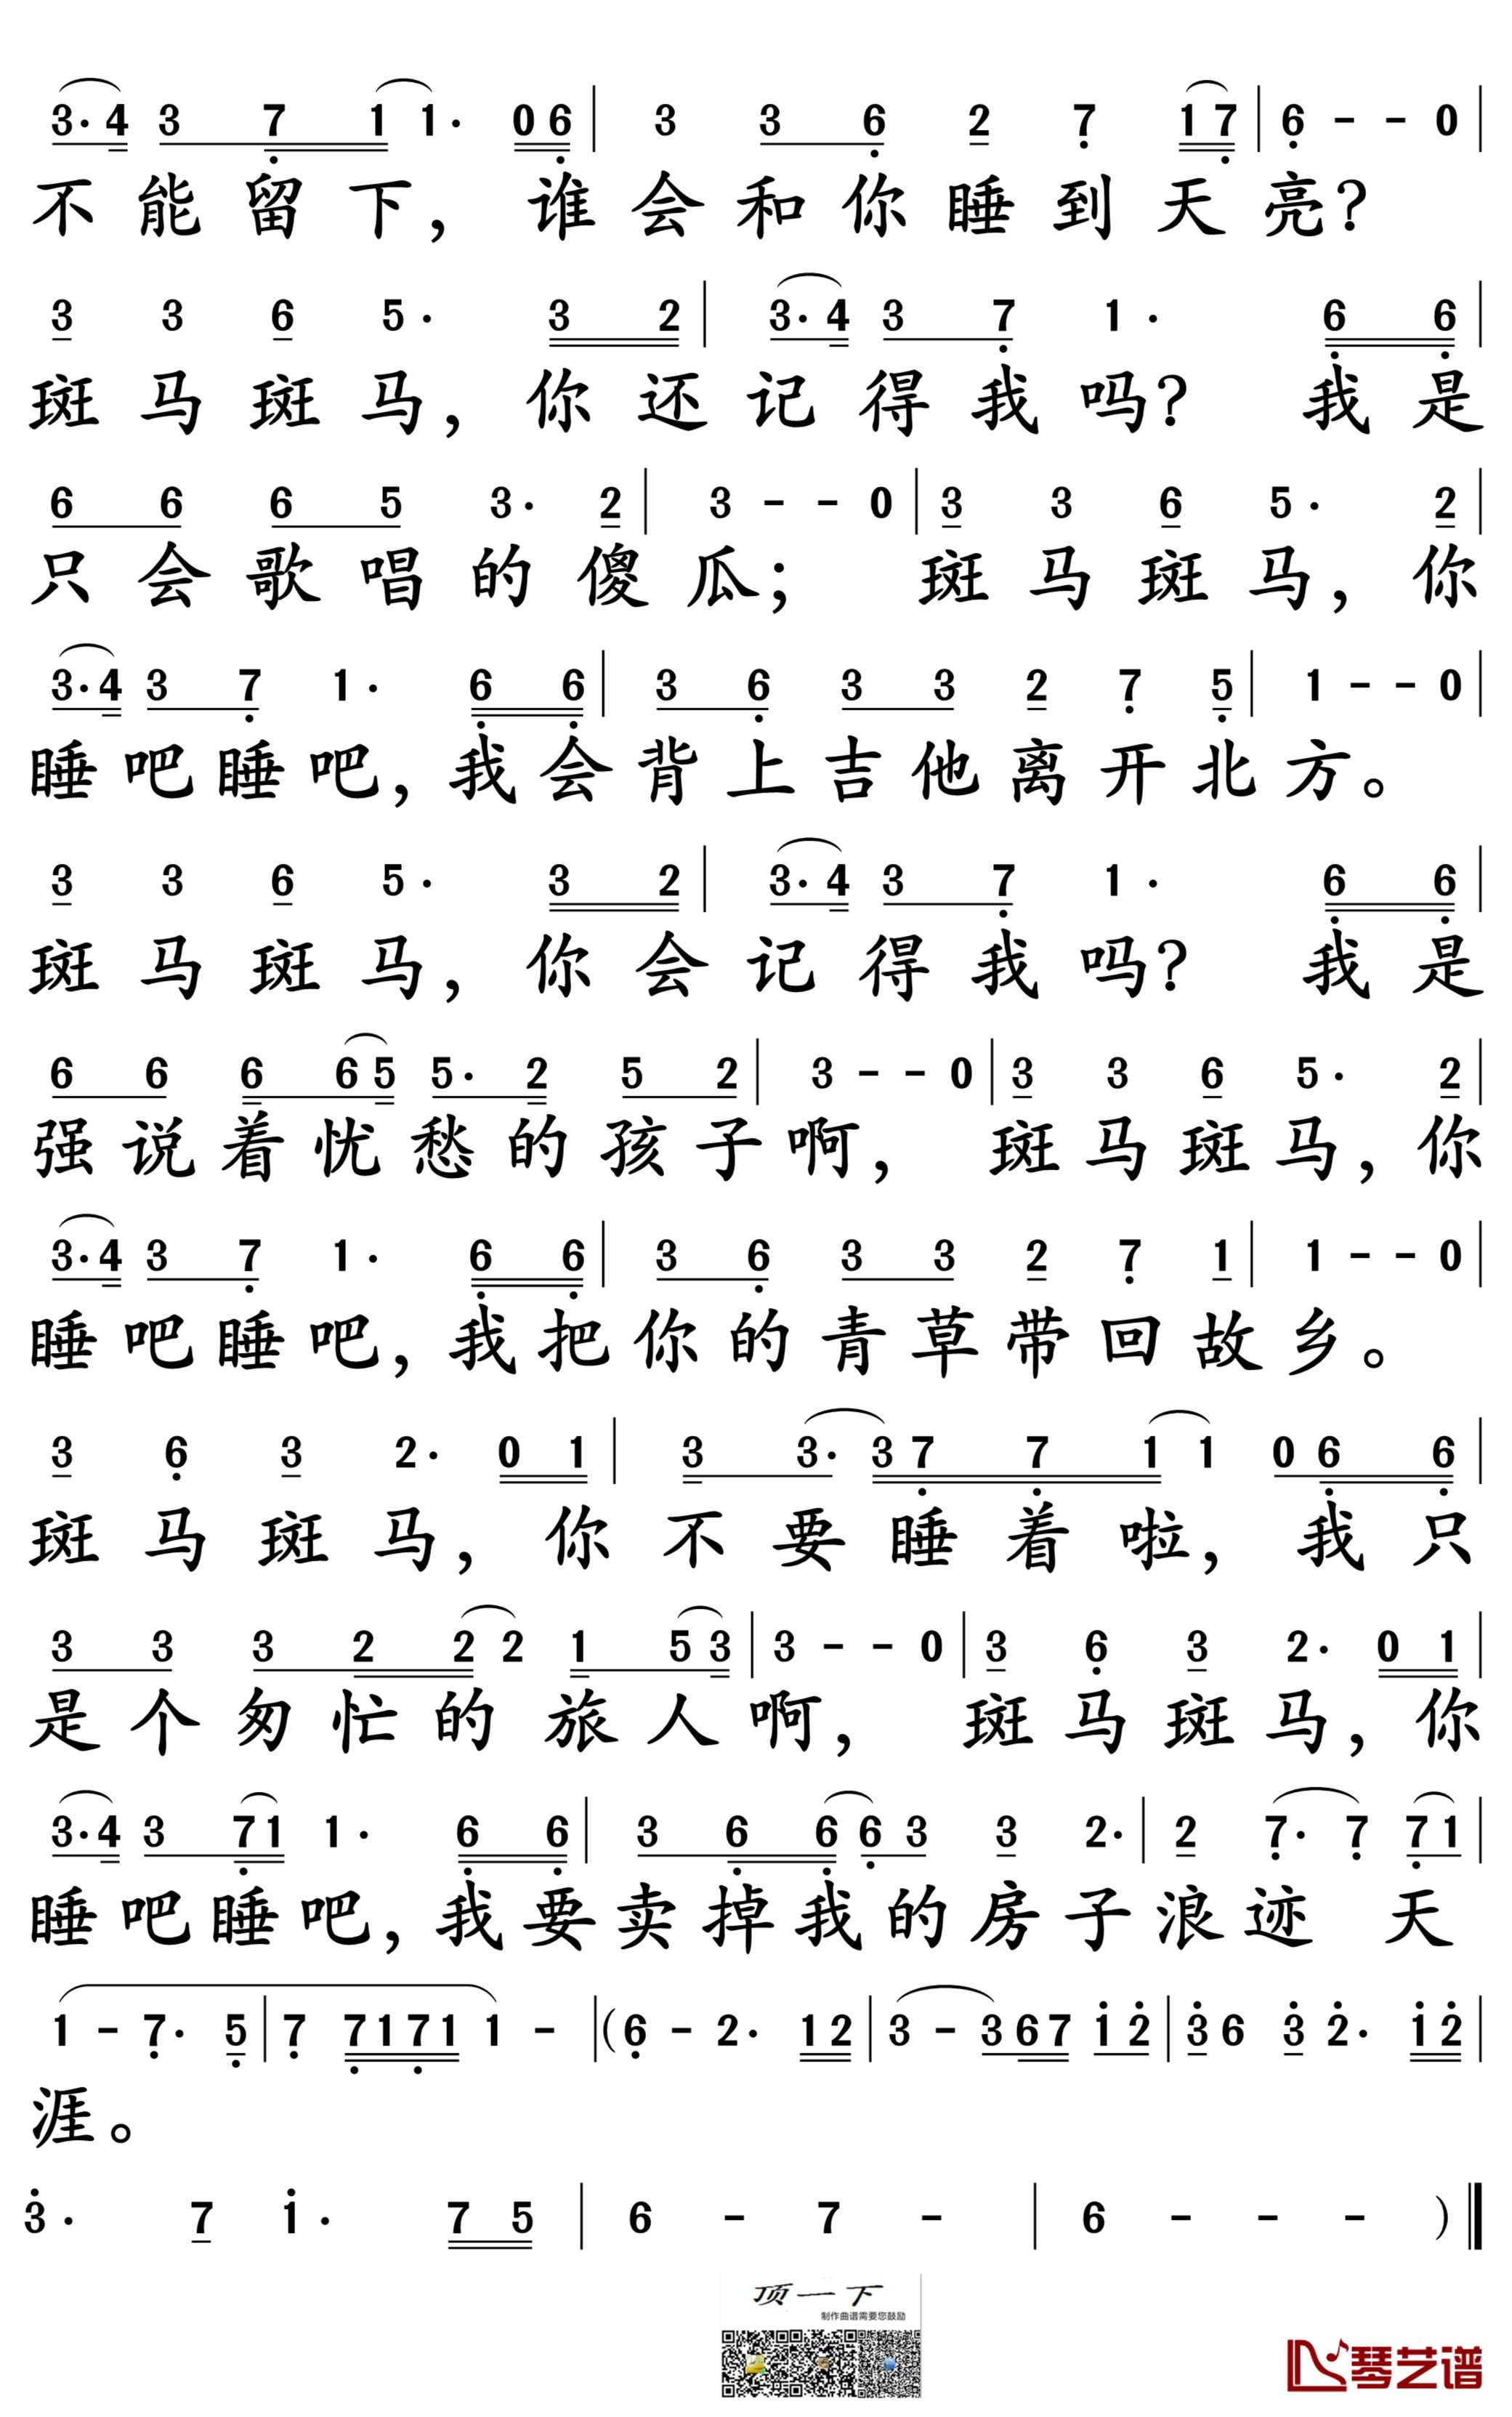 3·4 3 7 1 1· 0 6 | 3 3 6 2 7 1 7 | 6 - - 0 |
不能留下，谁会和你睡到天亮？
3 3 6 5· 3 2 | 3·4 3 7 1· 6 6 |
斑马斑马，你还记得我吗？我是
6 6 6 5 3· 2 | 3 - - 0 | 3 3 6 5· 2 |
只会歌唱的傻瓜；斑马斑马，你
3·4 3 7 1· 6 6 | 3 6 3 3 2 7 5 | 1 - - 0 |
睡吧睡吧，我会背上吉他离开北方。
3 3 6 5· 3 2 | 3·4 3 7 1· 6 6 |
斑马斑马，你会记得我吗？我是
6 6 6 6 5 5· 2 5 2 | 3 - - 0 | 3 3 6 5· 2 |
强说着忧愁的孩子啊，斑马斑马，你
3·4 3 7 1· 6 6 | 3 6 3 3 2 7 1 | 1 - - 0 |
睡吧睡吧，我把你的青草带回故乡。
3 6 3 2· 0 1 | 3 3· 3 7 7 1 1 0 6 6 |
斑马斑马，你不要睡着啦，我只
3 3 3 2 2 2 1 5 3 | 3 - - 0 | 3 6 3 2· 0 1 |
是个匆忙的旅人啊，斑马斑马，你
3·4 3 7 1 1· 6 6 | 3 6 6 6 3 3 2· | 2 7· 7 7 1 |
睡吧睡吧，我要卖掉我的房子浪迹天
1 - 7· 5 | 7 7 1 7 1 1 - | (6 - 2· 1 2 | 3 - 3 6 7 1 2 | 3 6 3 2· 1 2 |
涯。
3· 7 1· 7 5 | 6 - 7 - | 6 - - - )
顶一下
制作曲谱需要您鼓励
琴艺谱